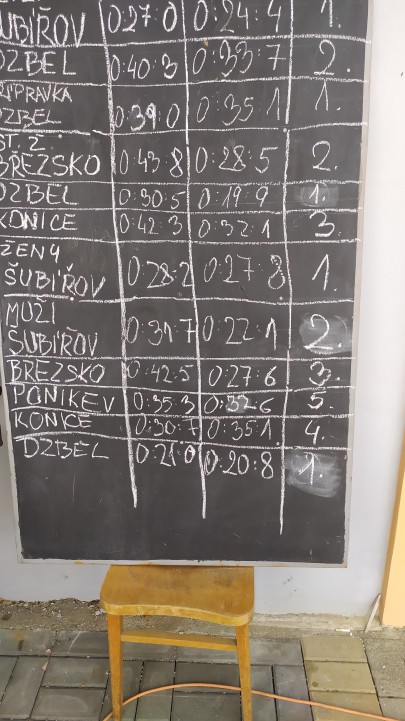 UBÍŘOV 0:27:0 0:24:4 1.
DZBEL 0:40:3 0:33:7 2.
PŘÍPRAVKA
DZBEL 0:39:0 0:35:1 1.
ST. Ž
BŘEZSKO 0:43:8 0:28:5 2.
DZBEL 0:30:5 0:19:9 1.
KONICE 0:42:3 0:32:1 3.
ŽENY
ŠUBÍŘOV 0:28:2 0:27:8 1.
MUŽI
ŠUBÍŘOV 0:31:7 0:22:1 2.
BŘEZSKO 0:42:5 0:27:6 3.
PONIKEV 0:35:3 0:37:6 5.
KONICE 0:30:7 0:35:1 4.
DZBEL 0:21:0 0:20:8 1.